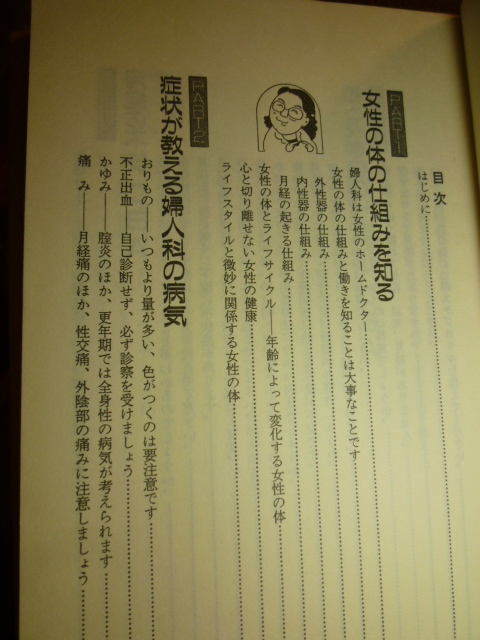 目次
はじめに
PART・1
女性の体の仕組みを知る
婦人科は女性のホームドクター
女性の体の仕組みと働きを知ることは大事なことです
外性器の仕組み
内性器の仕組み
月経の起きる仕組み
女性の体とライフサイクル――年齢によって変化する女性の体
心と切り離せない女性の健康
ライフスタイルと微妙に関係する女性の体
PART・2
症状が教える婦人科の病気
おりもの――いつもより量が多い、色がつくのは要注意です
不正出血――自己診断せず、必ず診察を受けましょう
かゆみ――膣炎のほか、更年期では全身性の病気が考えられます
痛み――月経痛のほか、性交痛、外陰部の痛みに注意しましょう